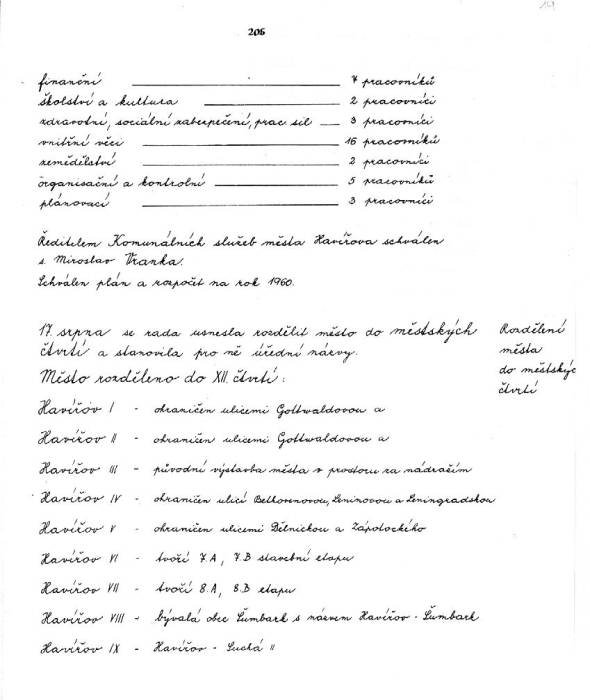 206
19
finanční 7 pracovníků
školství a kultura 2 pracovníci
zdravotní, sociální zabezpečení, prac sil 3 pracovníci
vnitřní věci 16 pracovníků
zemědělství 2 pracovníci
organisační a kontrolní 5 pracovníků
plánovací 3 pracovníci
Ředitelem Komunálních služeb města Havířova schválen
s. Miroslav Vranka.
Schválen plán a rozpočit na rok 1960.
17. srpna se rada usnesla rozdělit město do městských
čtvrtí a stanovila pro ně úřední názvy.
Město rozděleno do XII. čtvrtí:
Rozdělení
města
do městskýc
čtvrtí
Havířov I - ohraničen ulicemi Gottwaldovou a
Havířov II - ohraničen ulicemi Gottwaldovou a
Havířov III - původní výstavba města v prostoru za nádražím
Havířov IV - ohraničen ulicí Bethovenovou, Leninovou a Leningradskou
Havířov V - ohraničen ulicemi Dělnickou a Zápotockého
Havířov VI - tvoří 7.A, 7.B stavební etapu
Havířov VII - tvoří 8.A, 8.B etapu
Havířov VIII - bývalá obec Šumbark s názvem Havířov - Šumbark
Havířov IX - Havířov - Suchá II